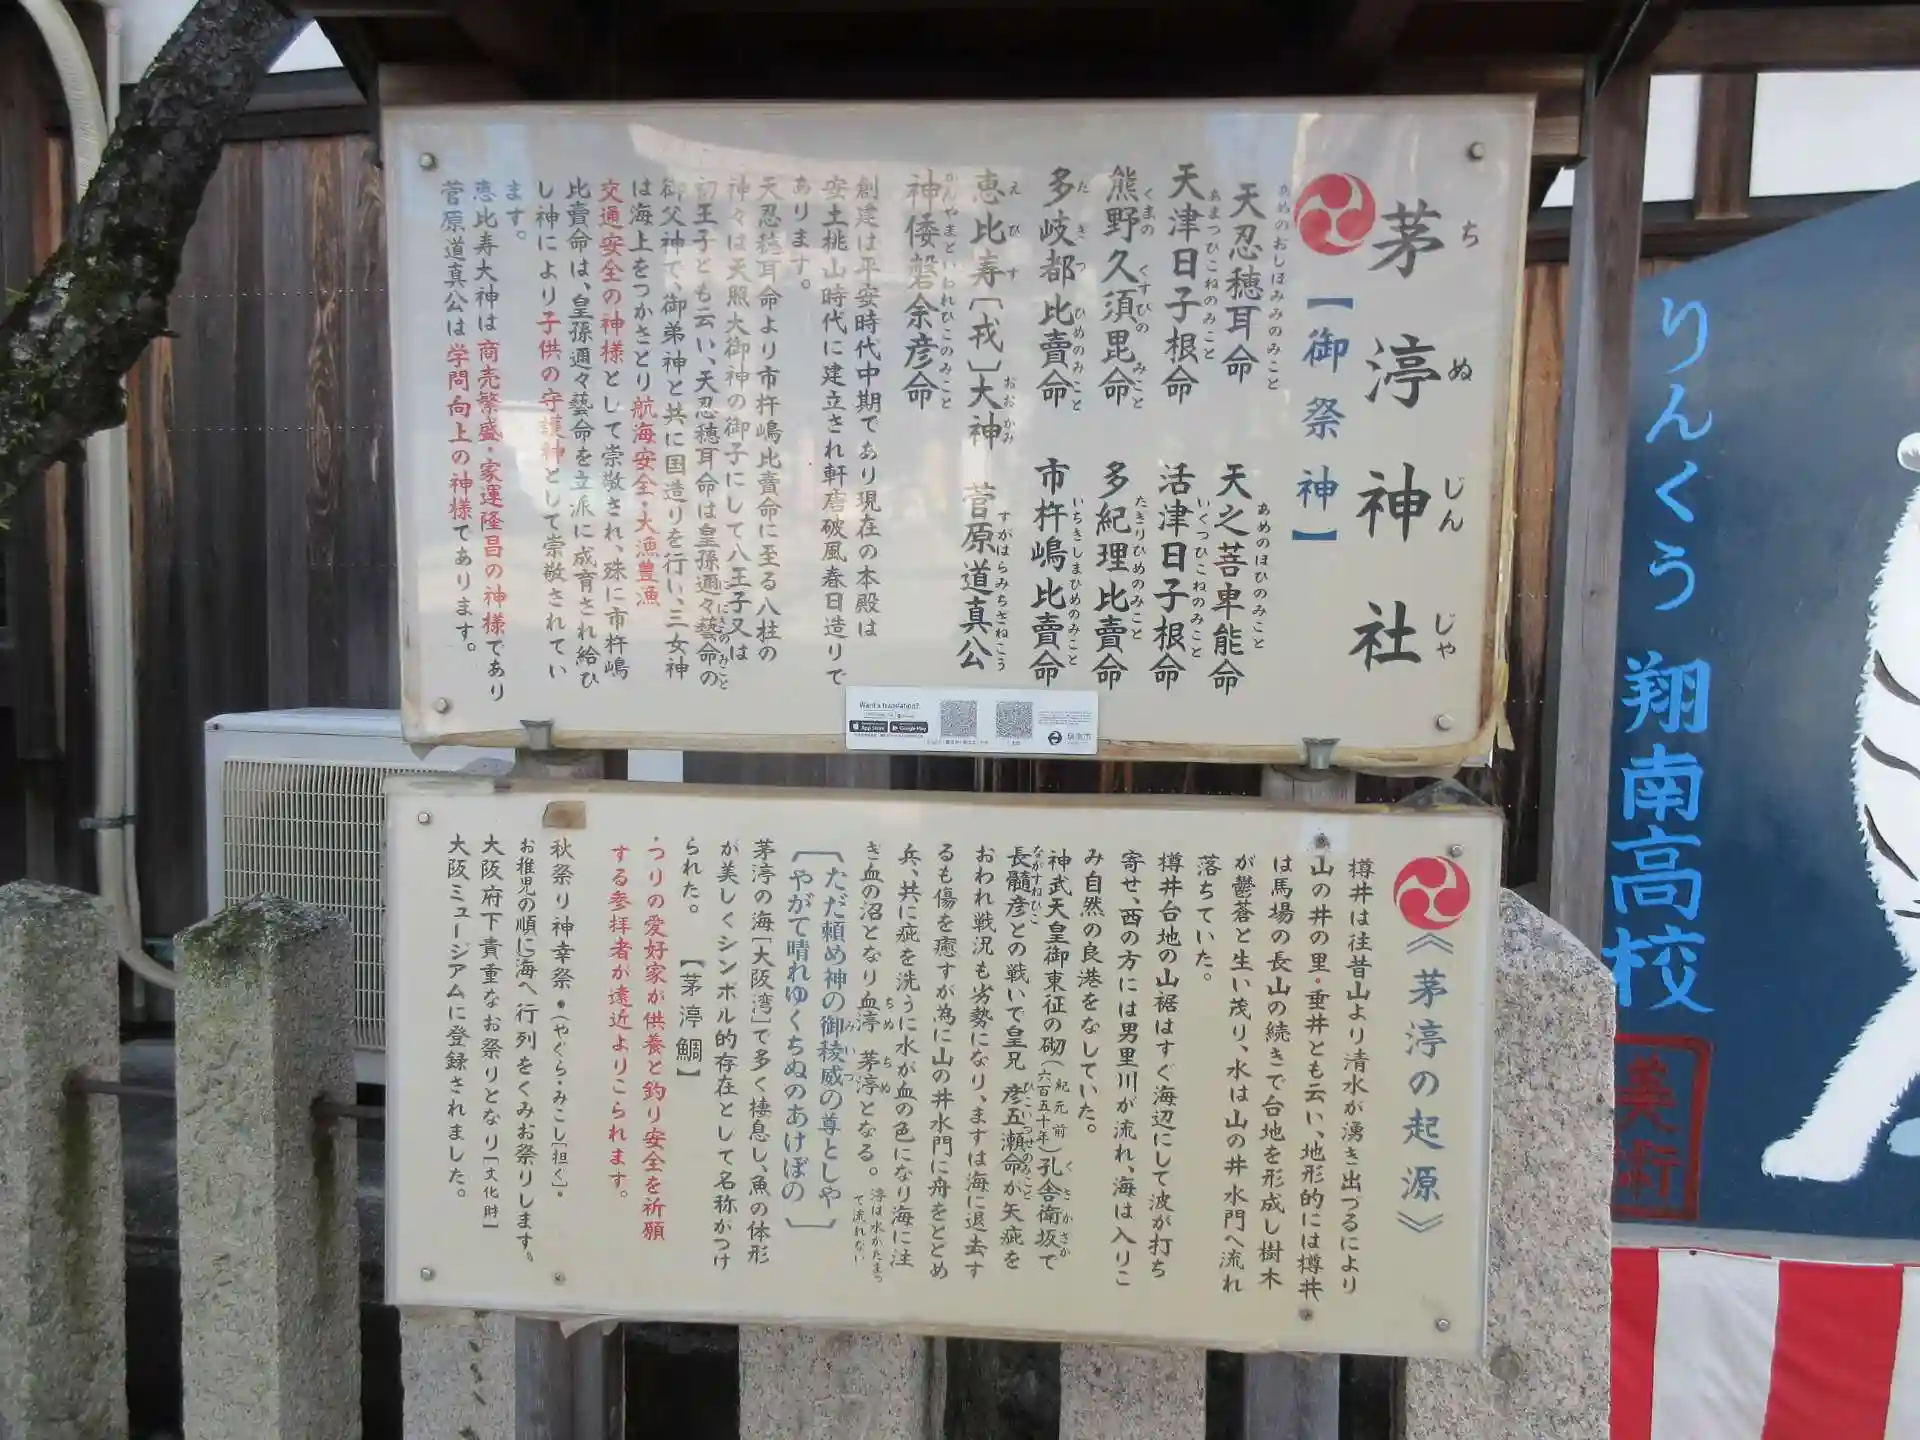 茅渟神社
ちぬじんじゃ
【御祭神】
天忍穂耳命
あめのおしほみみのみこと
天之菩卑能命
あめのほひのみこと
天津日子根命
あまつひこねのみこと
活津日子根命
いくつひこねのみこと
熊野久須毘命
くまのくすびのみこと
多紀理比賣命
たきりひめのみこと
多岐都比賣命
たきつひめのみこと
市杵嶋比賣命
いちきしまひめのみこと
恵比寿〔戎〕大神
えびすおおかみ
菅原道真公
すがはらみちざねこう
神倭磐余彦命
かんやまといわれひこのみこと
創建は平安時代中期であり現在の本殿は
安土桃山時代に建立され軒唐破風春日造りで
あります。
天忍穂耳命より市杵嶋比賣命に至る八柱の
神々は天照大御神の御子にして八王子又は
初王子とも云い、天忍穂耳命は皇孫邇々藝命の
ににきのみこと
御父神で、御弟神と共に国造りを行い、三女神
は海上をつかさとり航海安全・大漁豊漁
交通安全の神様として崇敬され、殊に市杵嶋
比賣命は、皇孫邇々藝命を立派に成育され給ひ
し神により子供の守護神として崇敬されてい
ます。
恵比寿大神は商売繁盛・家運隆昌の神様であり
菅原道真公は学問向上の神様であります。
Want a translation?
App Store
Google Play
《茅渟の起源》
樽井は往昔山より清水が湧き出づるにより
山の井の里・垂井とも云い、地形的には樽井
は馬場の長山の続きで台地を形成し樹木
が鬱蒼と生い茂り、水は山の井水門へ流れ
落ちていた。
樽井台地の山裾はすぐ海辺にして波が打ち
寄せ、西の方には男里川が流れ、海は入りこ
み自然の良港をなしていた。
神武天皇御東征の砌(紀元前六百五十年)孔舎衛坂で
くさかざか
長髓彦との戦いで皇兄 彦五瀬命か矢疵を
ながすねひこ
ひこいつせのみこと
おわれ戦況も劣勢になり、ますは海に退去す
るも傷を癒すが為に山の井水門に舟をとどめ
兵、共に疵を洗うに水が血の色になり海に注
ぎ血の沼となり血渟 茅渟となる。
ちぬ ちぬ
渟は水かたまって流れない
〔ただ頼め神の御稜威の尊としや〕
みいつ
〔やがて晴れゆくちぬのあけぼの〕
茅渟の海〔大阪湾〕で多く棲息し、魚の体形
が美しくシンボル的存在として名称がつけ
られた。
【茅渟鯛】
・つりの愛好家が供養と釣り安全を祈願
する参拝者が遠近よりこられます。
秋祭り神幸祭・(やぐら・みこし〔担ぐ〕・
お稚児の順に海へ行列をくみお祭りします。
大阪府下貴重なお祭りとなり〔文化財〕
大阪ミュージアムに登録されました。
りんくう翔南高校
美術